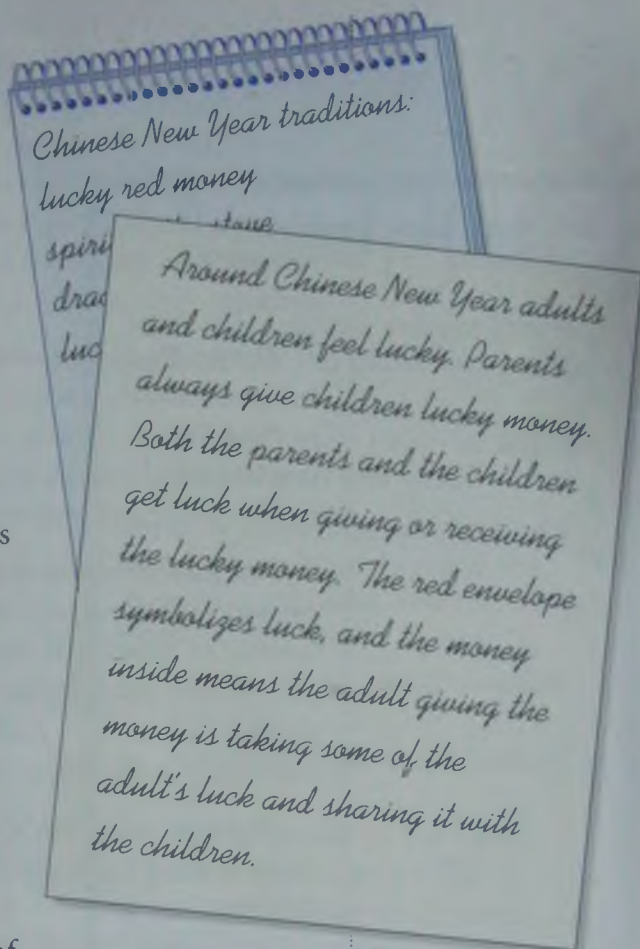 Chinese New Year traditions:
lucky red money
stove
Around Chinese New Year adults
and children feel lucky. Parents
always give children lucky money.
Both the parents and the children
get luck when giving or receiving
the lucky money. The red envelope
symbolizes luck, and the money
inside means the adult giving the
money is taking some of the
adult's luck and sharing it with
the children.